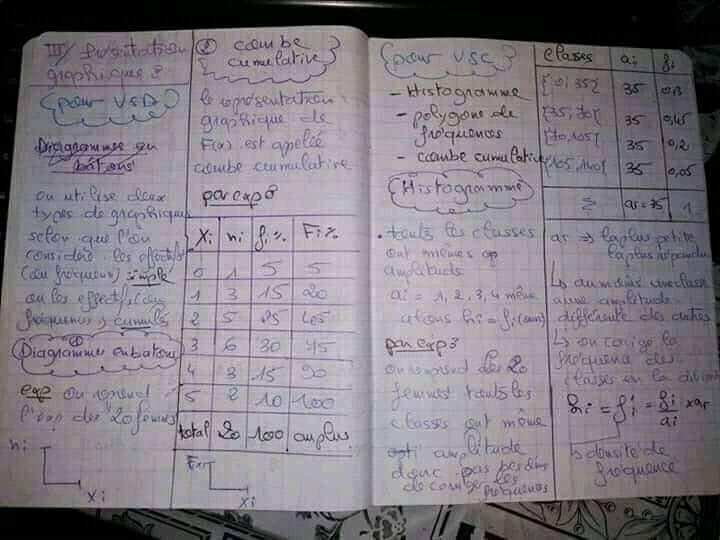 III/ Présentation
graphique :
pour VSD
Diagrammes en
bâtons
on utilise deux
types de graphiques
selon que l'on
considère les effectifs
(ou fréquence) simple
ou les effectifs (ou
fréquences) cumulés
① Diagrammes en batons
exp on reprend
l'exp des 20 femmes
ni
xi
② courbe
cumulative
la représentation
graphique de
F(x) est appelée
courbe cumulative
par exp :
Xi ni fi% Fi%
0 1 5 5
1 3 15 20
2 5 25 45
3 6 30 75
4 3 15 90
5 2 10 100
total 20 100 an plus
xi
pour VSC
- Histogramme
- polygone de
fréquences
- courbe cumulative
Histogramme
. touts les classes
ont mêmes
amplitude
ai = 1, 2, 3, 4 même
alors hi = fi
par exp :
on reprend des 20
femmes touts les
classes ont même
amplitude
donc pas
de corriger les
fréquences
classes ai fi
{0, 35{ 35
{35, 70{ 35 0,45
{70, 105{ 35 0,2
{105, 140{ 35 0,05
Σ 1
ar ⇒ la plus petite
la plus répandu
↳ au moins une classe
a une amplitude
différente des autres
↳ on corrige la
fréquence des
classes en la
hi = f'i = fi/ai × ar
↳ densité de
fréquence